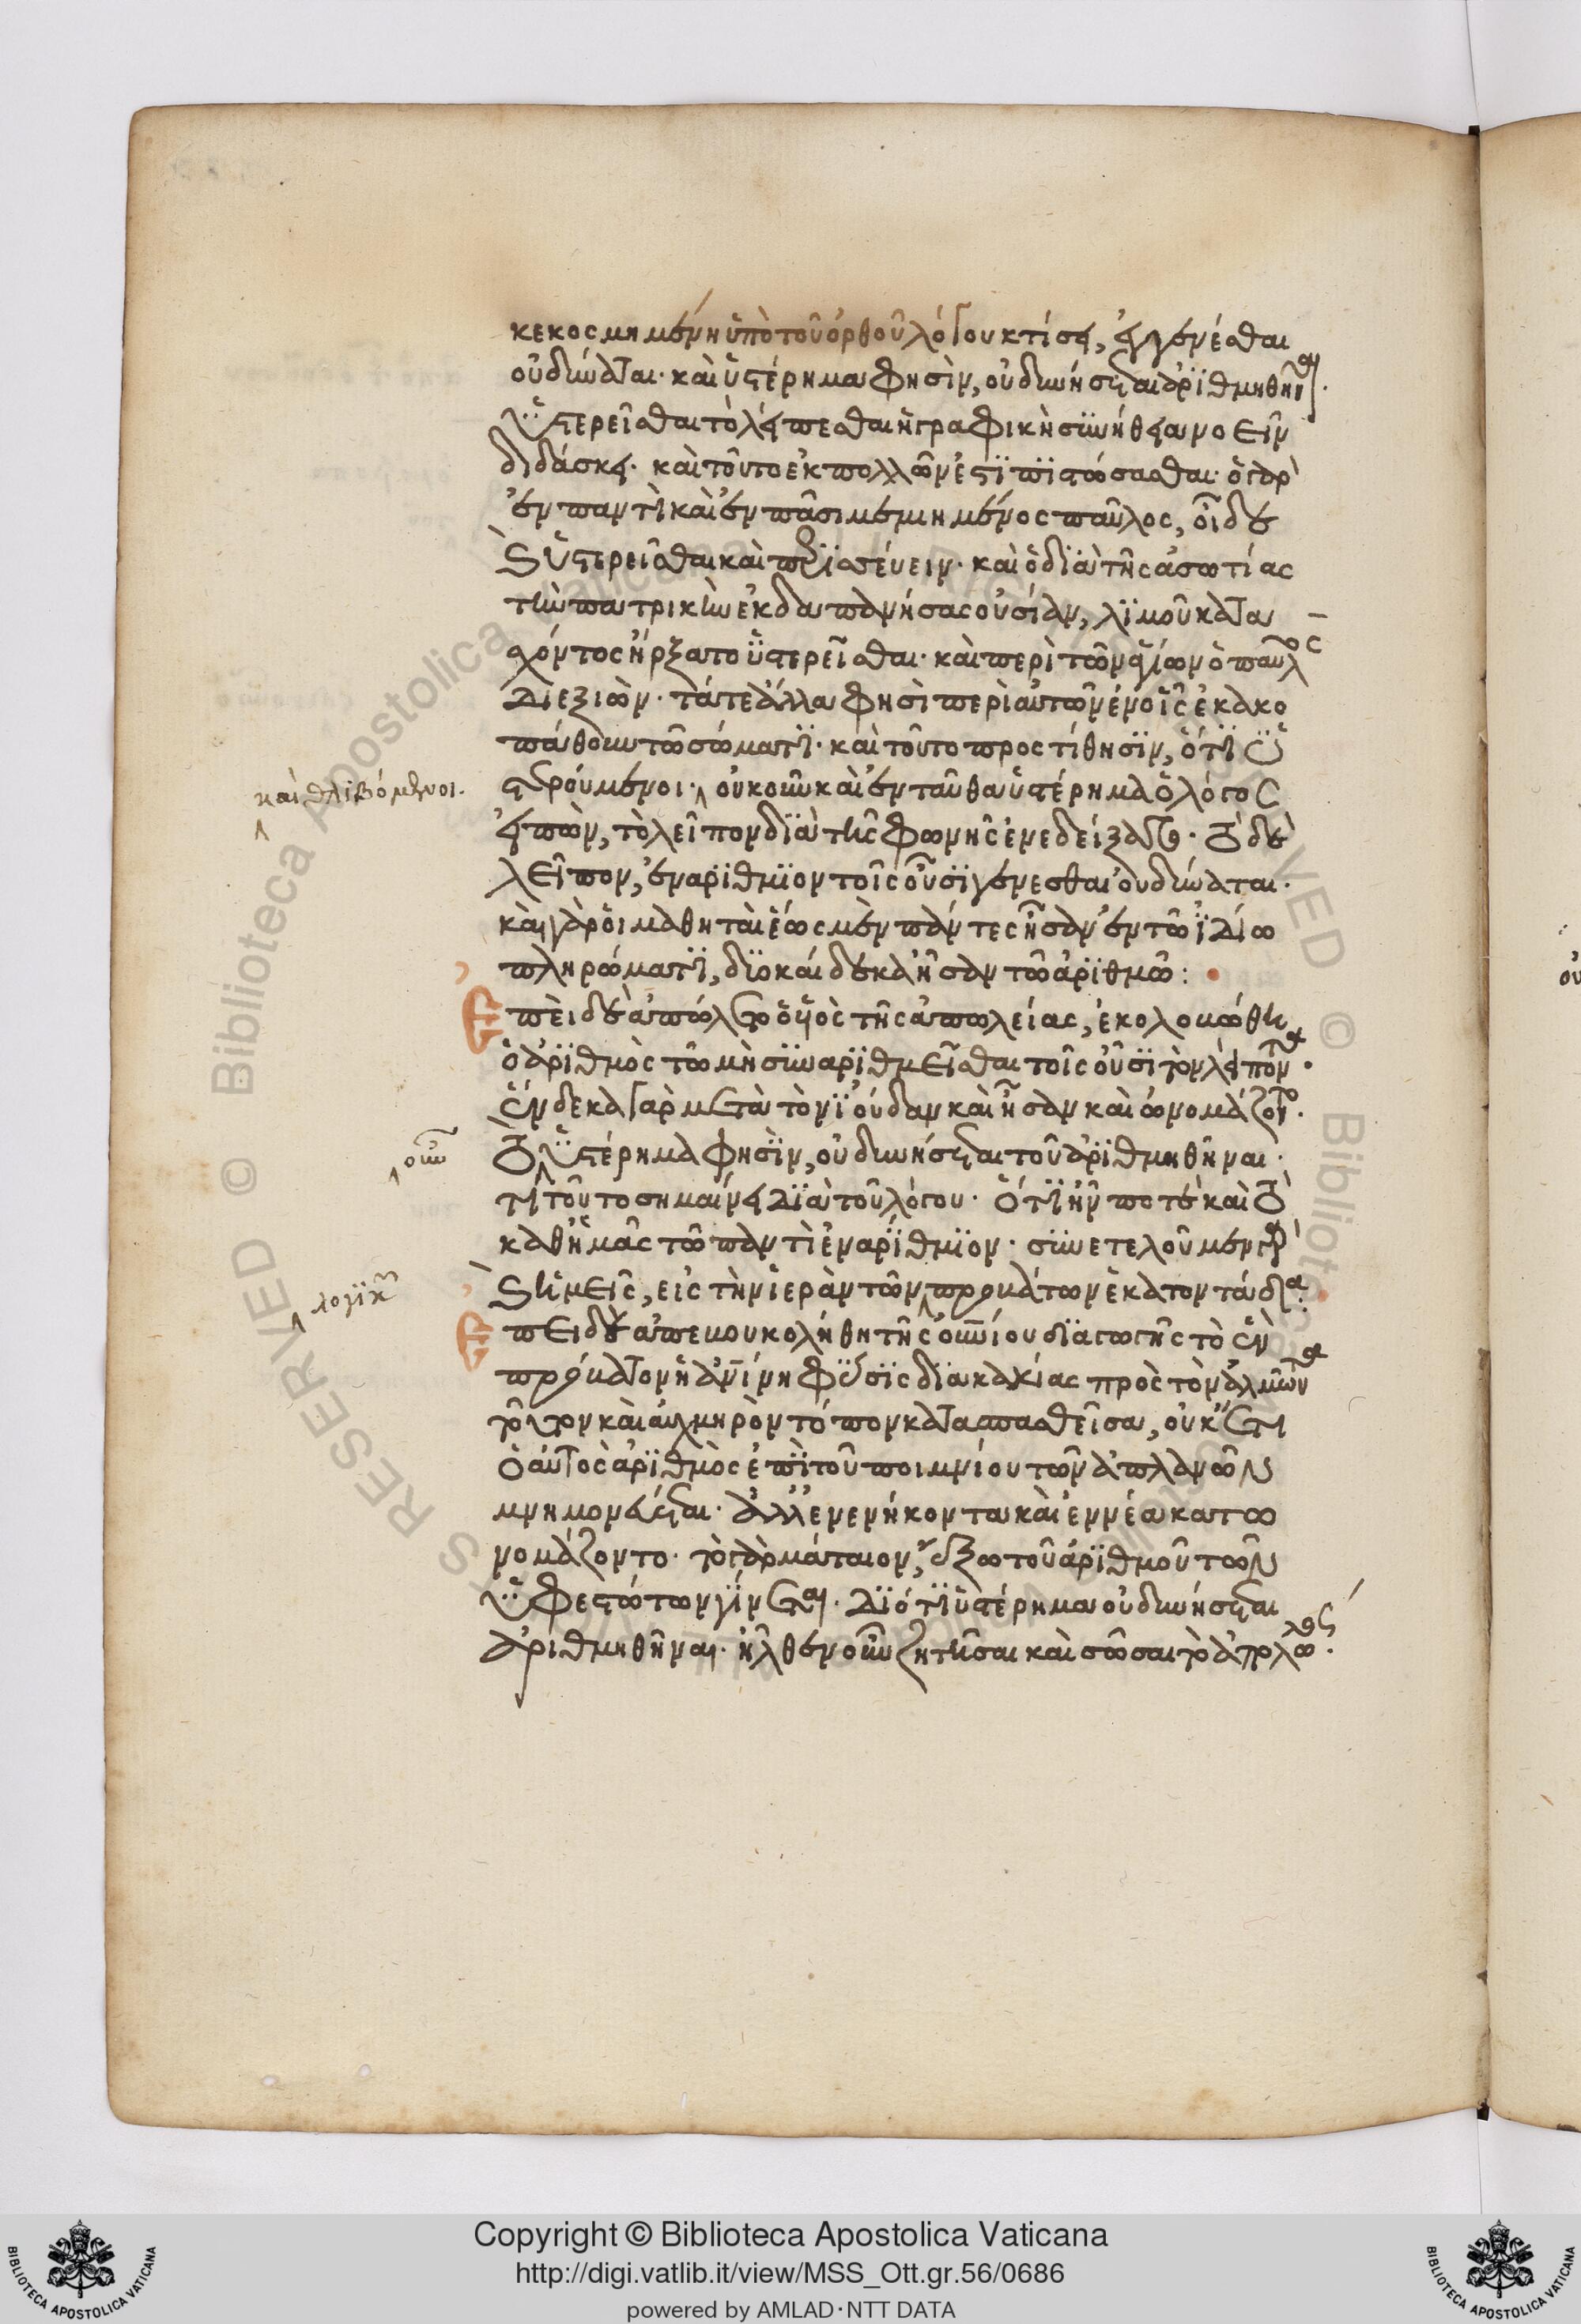 κεκοσμημένη ὑπὸ τοῦ ὀρθοῦ λόγου κτίσει, ἐγγενέσθαι
οὐ δύναται· καὶ ὑστέρημα φησὶν, οὐ δυνήσεται ἀριθμηθῆναι.
ὑστερεῖσθαι τὸ λείπεσθαι ἡ γραφικὴ συνήθεια νοεῖν
διδάσκει· καὶ τοῦτο ἐκ πολλῶν ἐστὶ πιστώσασθαι· ὁ γὰρ
ἐν παντὶ καὶ ἐν πᾶσι μεμυημένος παῦλος, οἶδε
καὶ ὑστερεῖσθαι καὶ περισσεύειν· καὶ ὁ διὰ τῆς ἀσωτίας
τὴν πατρικὴν ἐκδαπανήσας οὐσίαν, λιμοῦ κατα
σχόντος ἤρξατο ὑστερεῖσθαι· καὶ περὶ τῶν ἁγίων ὁ παῦλος
διεξιὼν· τά τε ἄλλα φησὶ περὶ αὐτῶν ἐν οἷς ἐκακο
πάθουν τῷ σώματι· καὶ τοῦτο προστίθησιν, ὅτι ὑ
στερούμενοι· οὐκοῦν καὶ ἐνταῦθα ὑστέρημα ὁ λόγος
καὶ θλιβόμενοι.
εἰπὼν, τὸ λεῖπον διὰ τῆς φωνῆς ἐνεδείξατο· τὸ δὲ
λεῖπον, ἐναρίθμιον τοῖς οὖσι γενέσθαι οὐ δύναται.
καὶ γὰρ οἱ μαθηταὶ ἕως μὲν πάντες ἦσαν ἐν τῷ ἰδίω
πληρώματι, διοκαίδεκα ἦσαν τῷ ἀριθμῷ:
ἐπεὶ δὲ ἀπώλετο ὁ υἱὸς τῆς ἀπωλείας, ἐκολοβώθη
ὁ ἀριθμὸς τῷ μὴ συναριθμεῖσθαι τοῖς οὖσι τὸν λείποντα.
ἕνδεκα γὰρ μετὰ τὸν ἰούδαν καὶ ἦσαν καὶ ὠνομάζοντο.
τὸ ὑστέρημα φησὶν, οὐ δυνήσεται τοῦ ἀριθμηθῆναι.
οὖν
τί τοῦτο σημαίνει διὰ τοῦ λόγου· ὅτι ἦν ποτὲ καὶ τὸ
καθ' ἡμᾶς τῷ παντὶ ἐναρίθμιον· συνετελοῦμεν γὰρ
καὶ ἡμεῖς, εἰς τὴν ἱερὰν τῶν προβάτων ἑκατοντάδα:
λογικῶν
ἐπεὶ δὲ ἀπεβουκολήθη τῆς οὐρανίου διαγωγῆς τὸ ἓν
πρόβατον ἡ ἀνθρωπίνη φύσις διὰ κακίας πρὸς τὸν ἁλμῶντα
τοῦτον καὶ αὐχμηρὸν τόπον κατασπασθεῖσα, οὐκέτι
ὁ αὐτὸς ἀριθμὸς ἐπὶ τοῦ ποιμνίου τῶν ἀπλανῶν
μνημονεύεται· ἀλλ' ἐνενήκοντα καὶ ἐννέα κατω
νομάζοντο· τὸ γὰρ μάταιον, ἔξω τοῦ ἀριθμοῦ τῶν
ὑφεστώτων γίνεται· διότι ὑστέρημα οὐ δυνήσεται
ἀριθμηθῆναι· ἦλθεν οὖν ζητῆσαι καὶ σῶσαι τὸ ἀπολωλὸς.
Copyright © Biblioteca Apostolica Vaticana
http://digi.vatlib.it/view/MSS_Ott.gr.56/0686
powered by AMLAD·NTT DATA